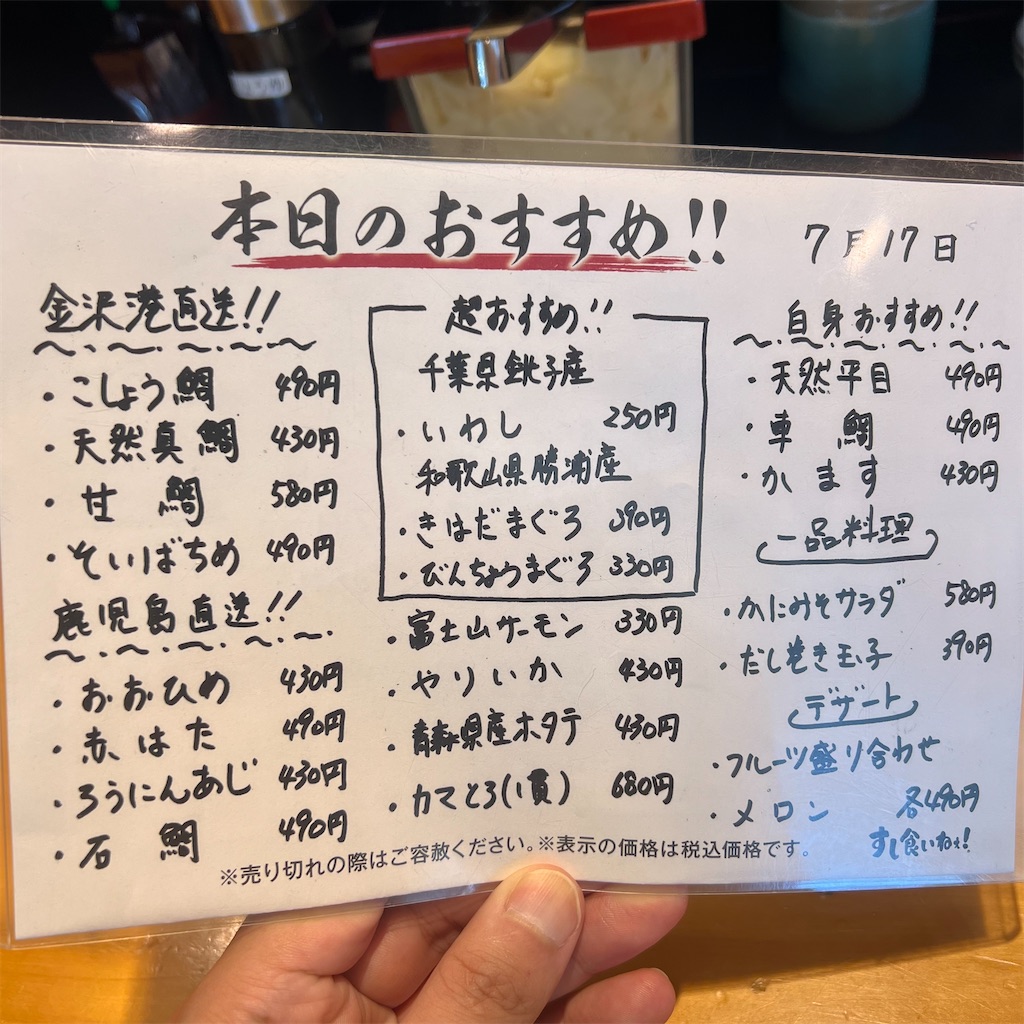 本日のおすすめ!!
7月17日
金沢港直送!!
・こしょう鯛 490円
・天然真鯛 430円
・甘鯛 580円
・そいばちめ 490円
鹿児島直送!!
・おおひめ 430円
・赤はた 490円
・ろうにんあじ 430円
・石鯛 490円
超おすすめ!!
千葉県銚子産
・いわし 250円
和歌山県勝浦産
・きはだまぐろ 390円
・びんちょうまぐろ 330円
・富士山サーモン 330円
・やりいか 430円
・青森県産ホタテ 430円
・カマとろ(1貫) 680円
白身おすすめ!!
・天然平目 490円
・車鯛 490円
・かます 430円
一品料理
・かにみそサラダ 580円
・だし巻き玉子 390円
デザート
・フルーツ盛り合わせ
・メロン 各490円
すし食いねぇ!
※売り切れの際はご容赦ください。※表示の価格は税込価格です。